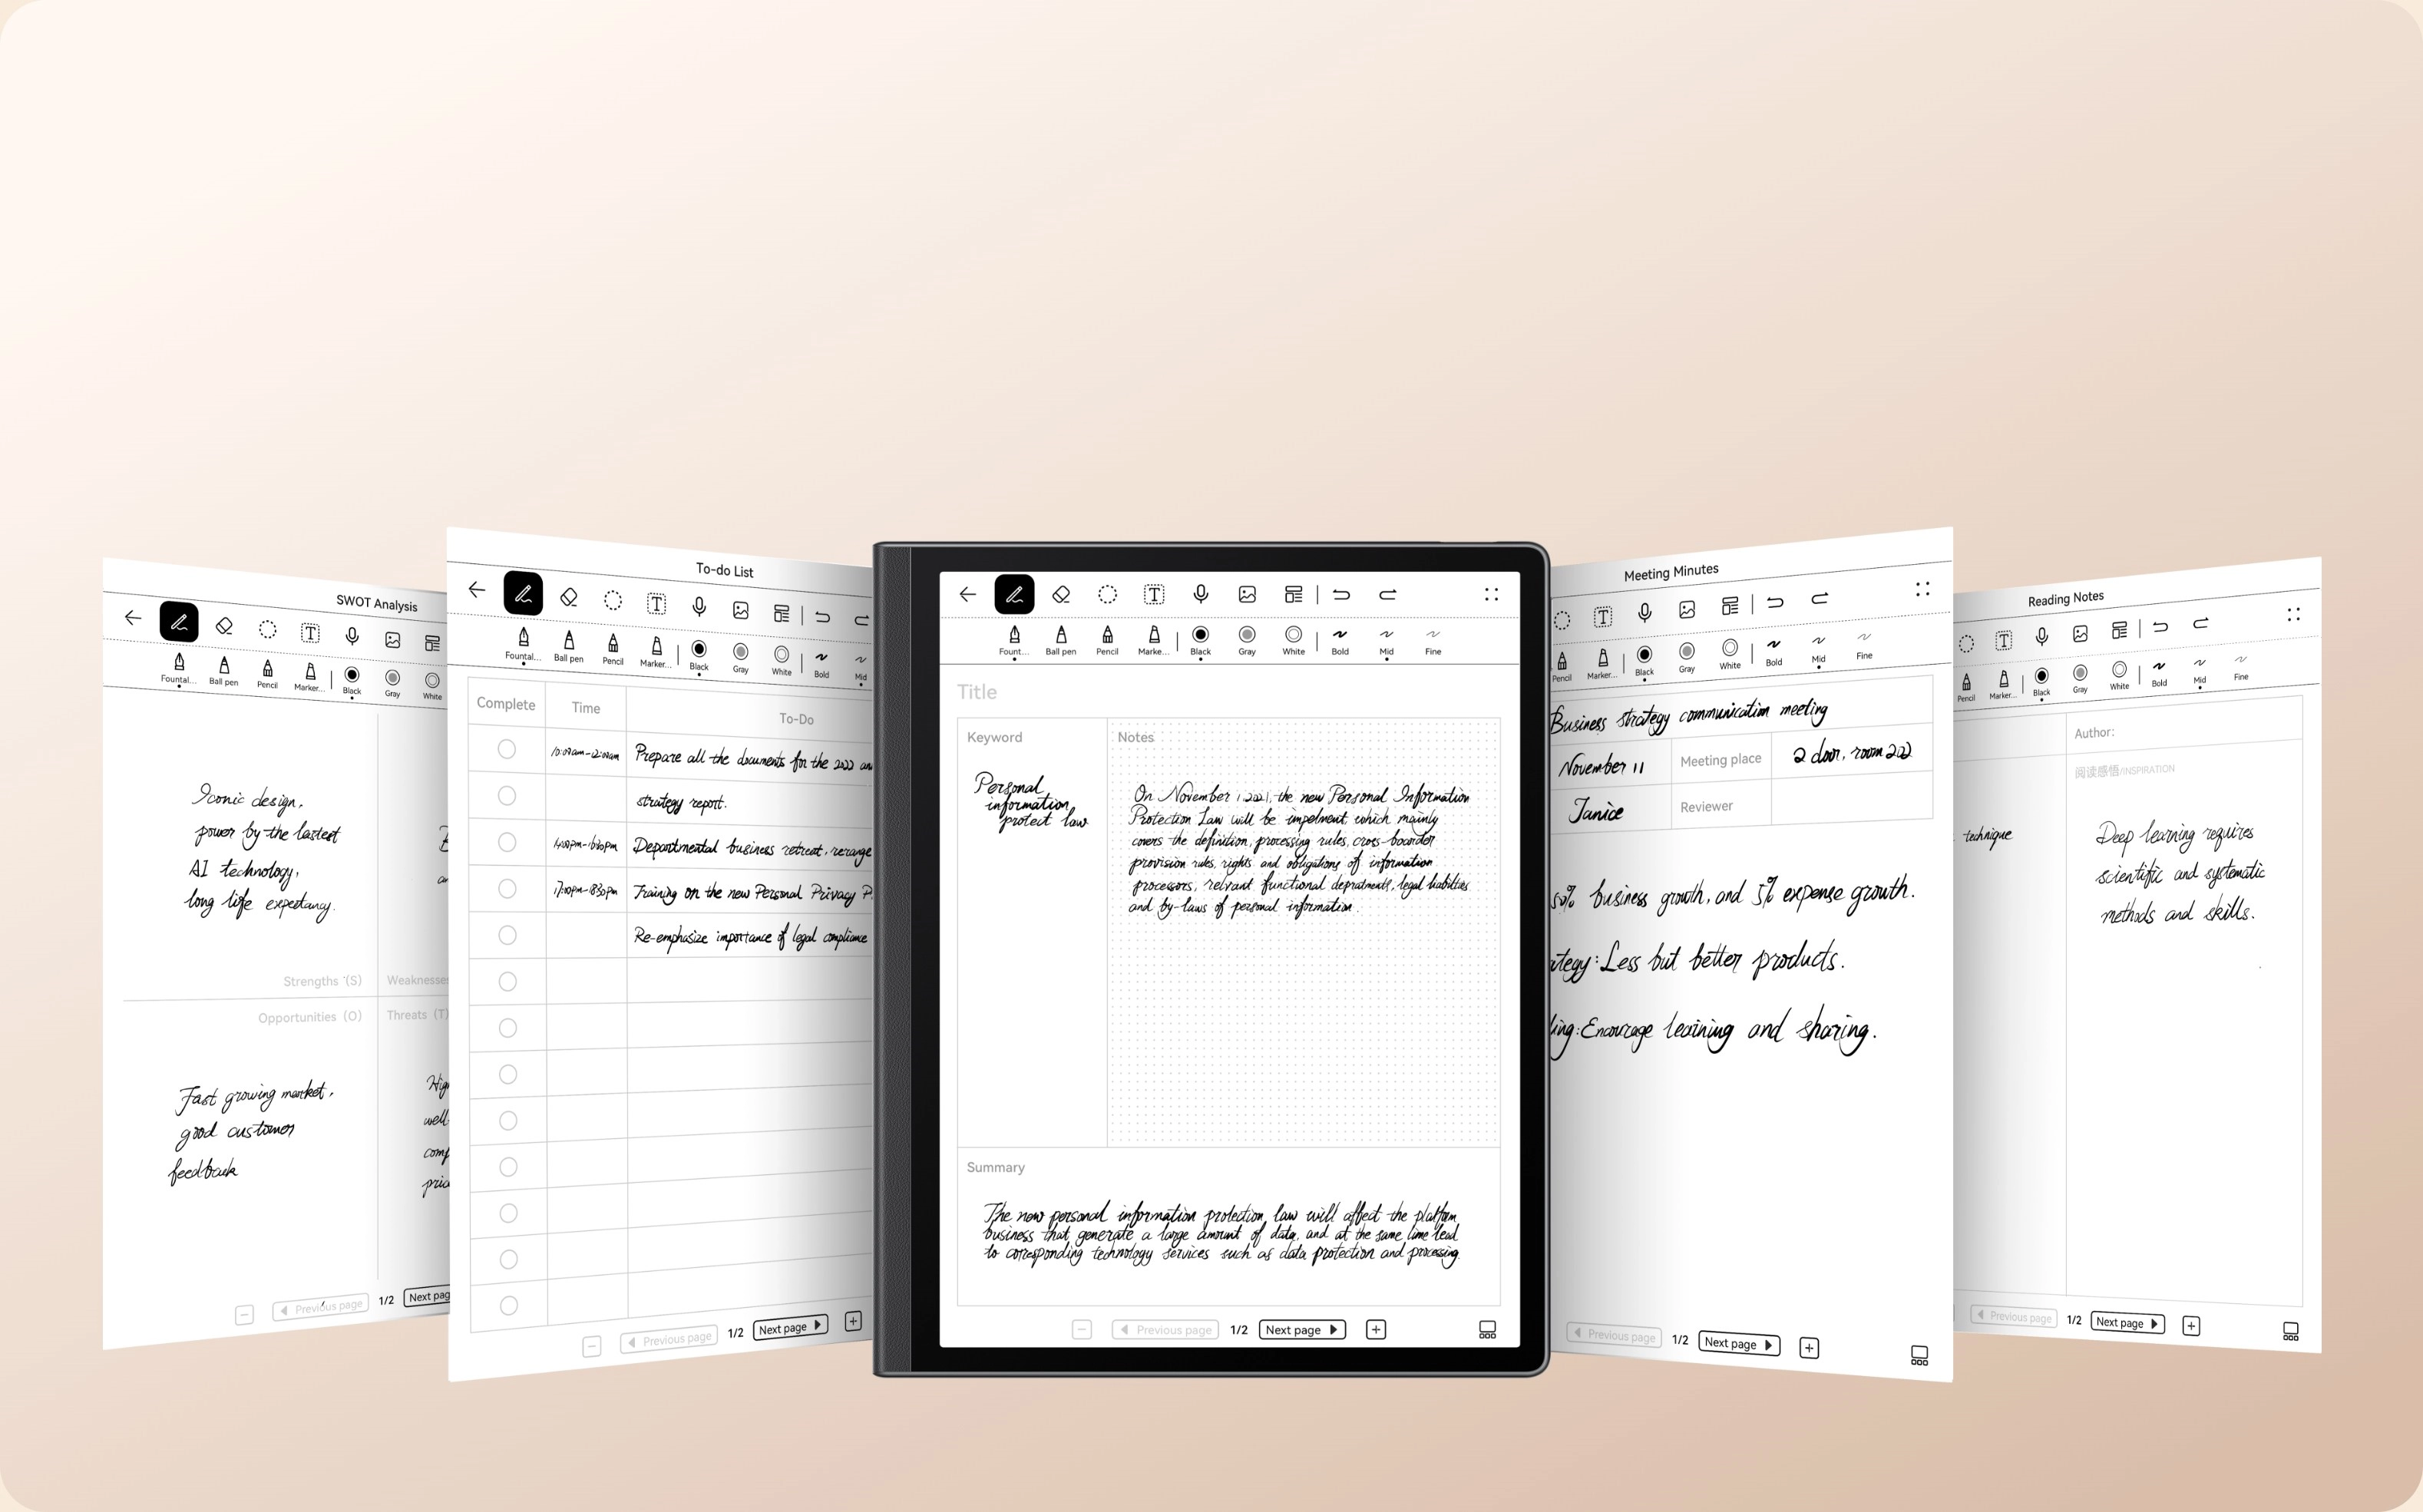 SWOT Analysis
Fountal...
Ball pen
Pencil
Marker...
Black
Gray
White
Iconic design,
power by the lastest
AI technology,
long life expectancy.
Strengths (S)
Weaknesses
Opportunities (O)
Threats (T)
Fast growing market,
good customer
feedback
well-
Previous page
1/2
Next pag
To-do List
Fountal...
Ball pen
Pencil
Marker...
Black
Gray
White
Bold
Mid
Complete
Time
To-Do
10:00am-12:00am
Prepare all the documents for the 2022 an
strategy report.
Departmental business retreat, rerange
Training on the new Personal Privacy P
Re-emphasize importance of legal compliance
Previous page
1/2
Next page
Fount...
Ball pen
Pencil
Marke...
Black
Gray
White
Bold
Mid
Fine
Title
Keyword
Personal
information
protect law
Notes
On November 1, 2021, the new Personal Information
Protection Law will be impelment which mainly
covers the definition, processing rules, cross-boarder
provision rules, rights and obligations of information
processors, relevant functional depratments, legal liabilities
and by-laws of personal information.
Summary
The new personal information protection law will affect the platform
business that generate a large amount of data, and at the same time lead
to corresponding technology services such as data protection and processing.
Previous page
1/2
Next page
Meeting Minutes
Pencil
Marker...
Black
Gray
White
Bold
Mid
Fine
Business strategy communication meeting
November 11
Meeting place
2 door, room 202
Janice
Reviewer
50% business growth, and 5% expense growth.
ategy: Less but better products.
ing: Encourage learning and sharing.
Previous page
1/2
Next page
Reading Notes
Pencil
Marker...
Black
Gray
White
Bold
Mid
Fine
Author:
阅读感悟/INSPIRATION
technique
Deep learning requires
scientific and systematic
methods and skills.
Previous page
1/2
Next page